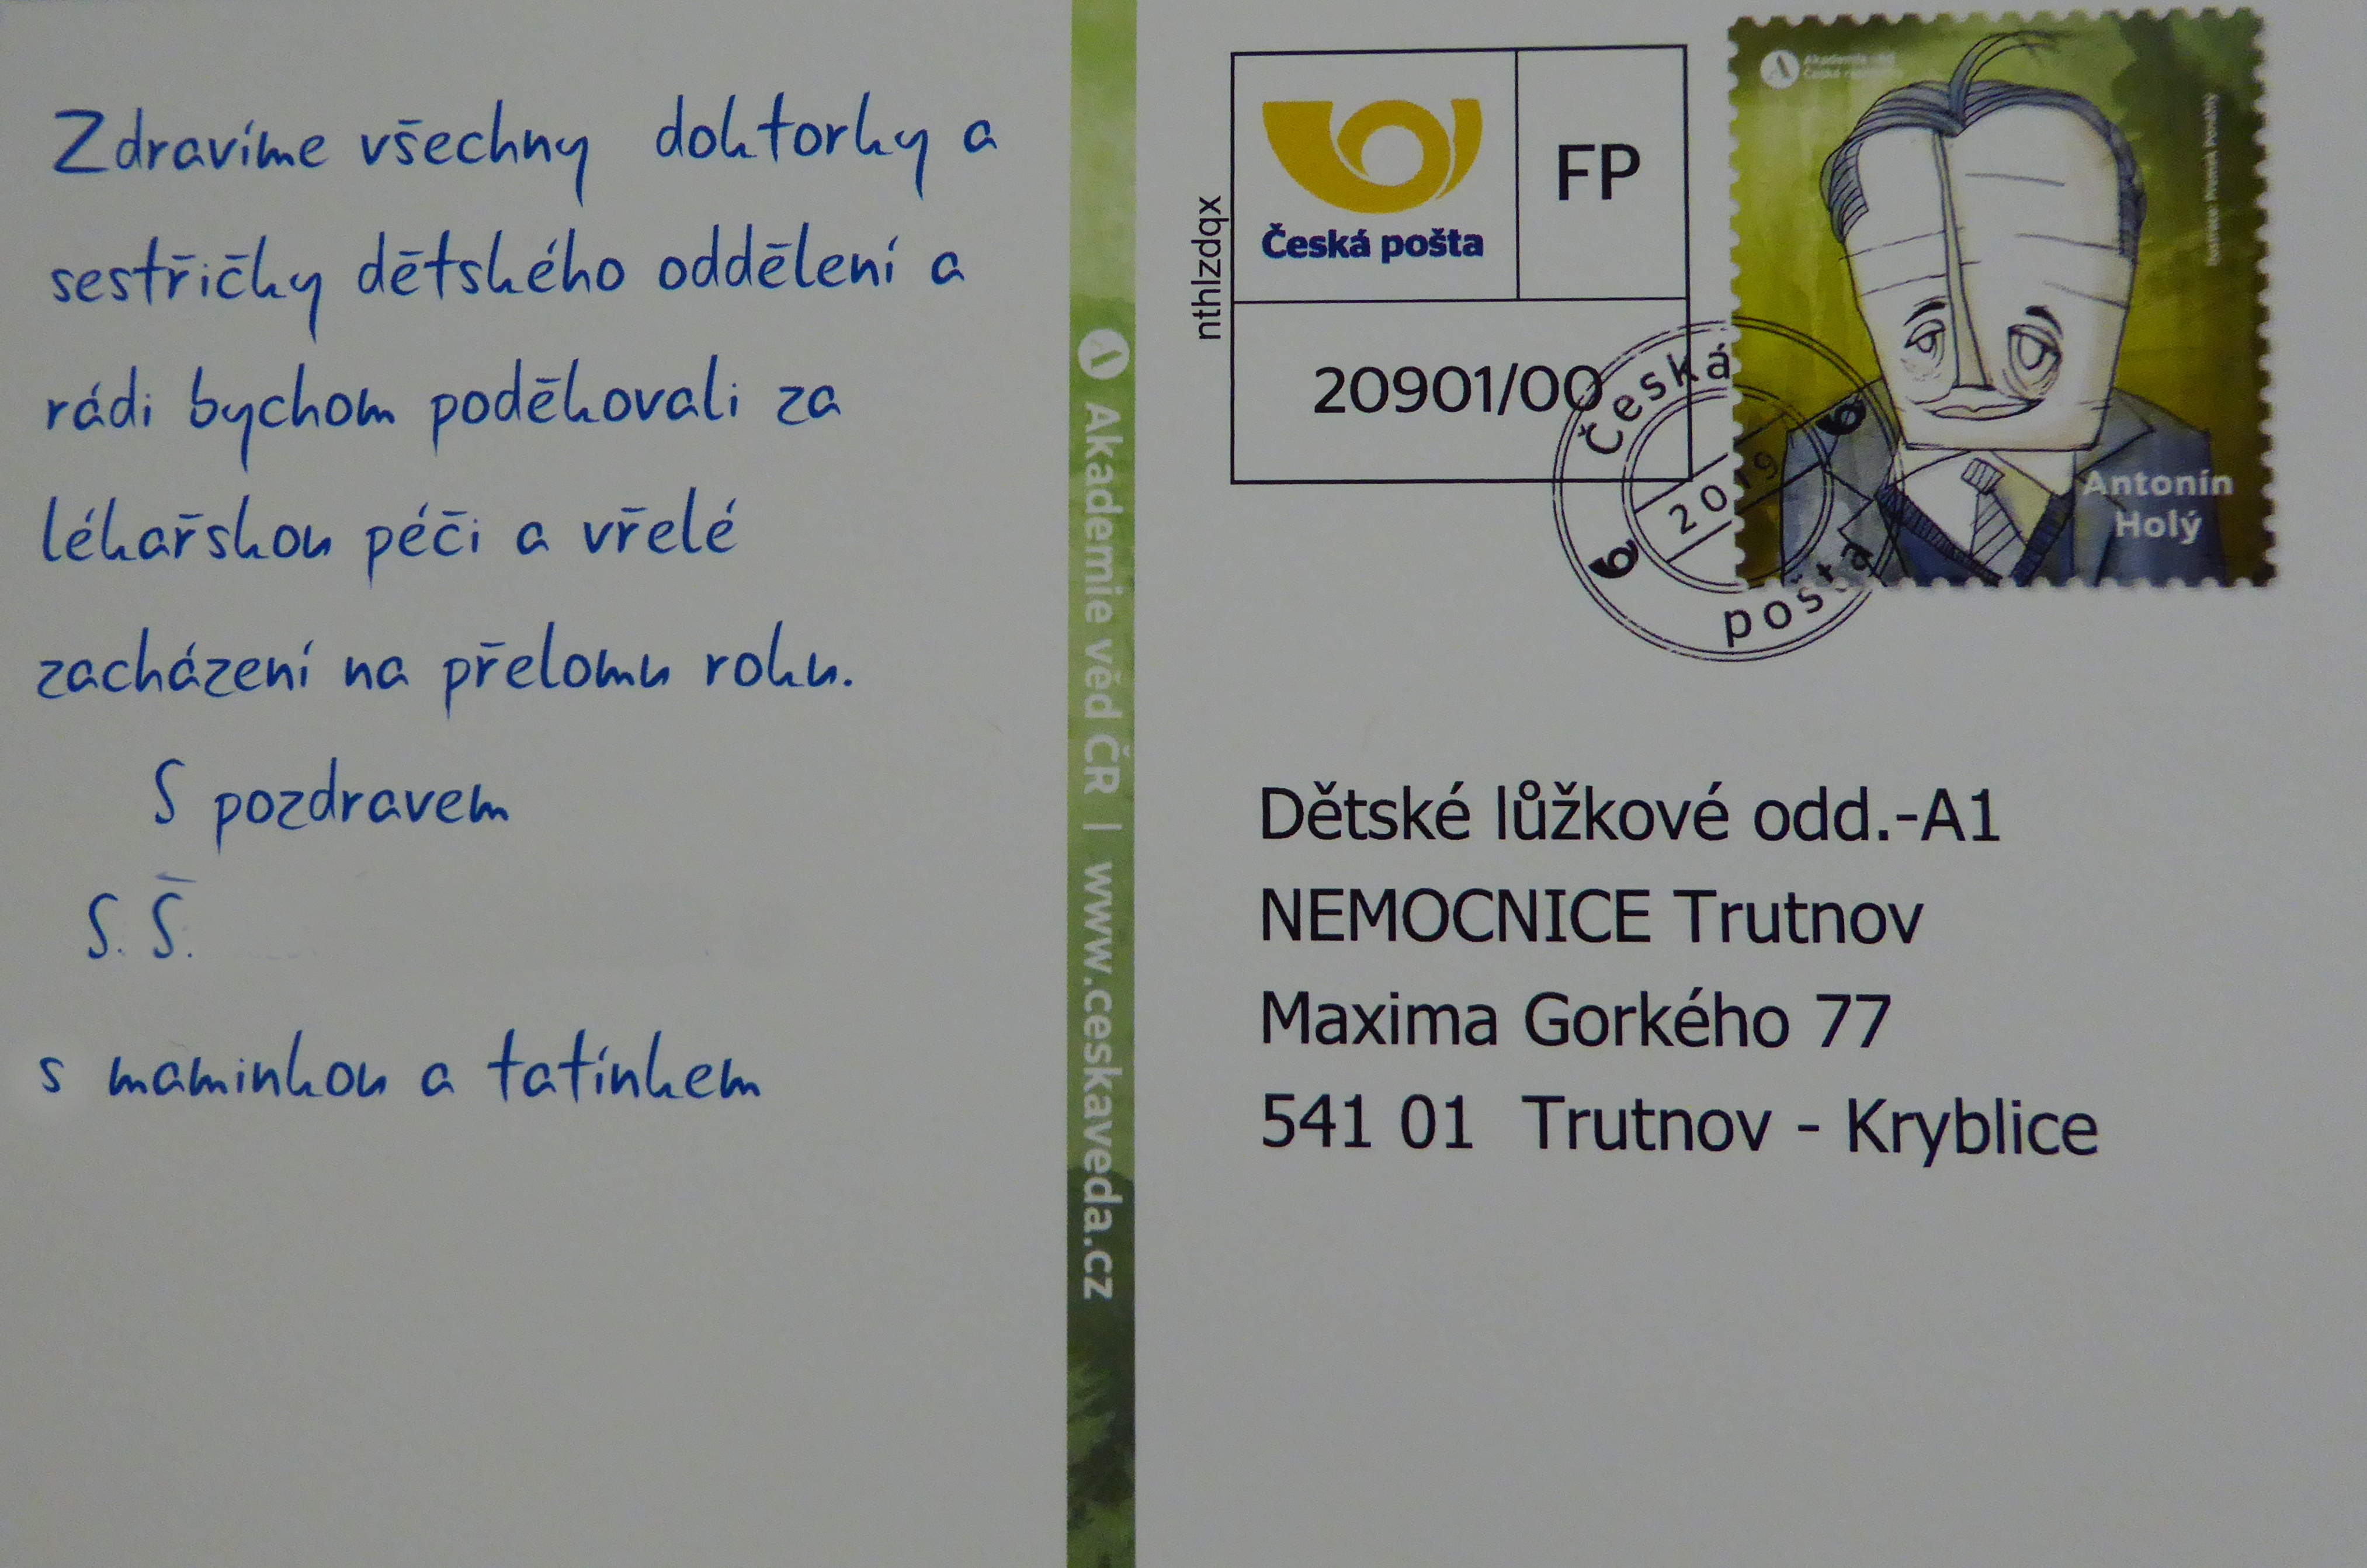 Zdravíme všechny doktorky a
sestřičky dětského oddělení a
rádi bychom poděkovali za
lékařskou péči a vřelé
zacházení na přelomu roku.
S pozdravem
S. Š.
s maminkou a tatínkem
Akademie věd ČR | www.ceskaveda.cz
nthlzdqx
Česká pošta
FP
20901/00
Česká
2019
pošta
Akademie věd
České republiky
Antonín
Holý
Dětské lůžkové odd.-A1
NEMOCNICE Trutnov
Maxima Gorkého 77
541 01 Trutnov - Kryblice